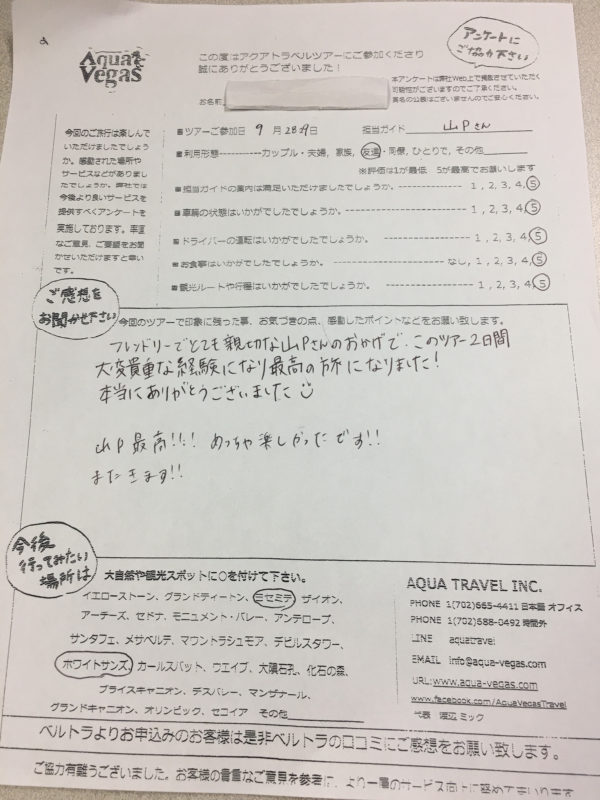 Aqua Vegas
この度はアクアトラベルツアーにご参加くださり
誠にありがとうございました！
アンケートに
ご協力下さい
本アンケートは弊社Web上で掲載させていただく
可能性がございますのでご了承ください。
実名の公表はございませんのでご安心ください。
お名前
今回のご旅行は楽しんで
いただけましたでしょう
か。感動された場所や
サービスなどがありまし
たでしょうか。弊社では
今後より良いサービスを
提供すべくアンケートを
実施しております。率直
なご意見、ご要望をお聞
かせいただけますと幸い
です。
■ツアーご参加日 9 月 28 29日 担当ガイド 山Pさん
■利用形態-----------カップル・夫婦, 家族, 友達・同僚, ひとりで, その他
※評価は1が最低 5が最高でお願いします
■担当ガイドの案内は満足いただけましたでしょうか。 1 , 2, 3, 4, 5
■車輌の状態はいかがでしたでしょうか。 1 , 2, 3, 4, 5
■ドライバーの運転はいかがでしたでしょうか。 1 , 2, 3, 4, 5
■お食事はいかがでしたでしょうか。 なし, 1, 2, 3, 4, 5
■観光ルートや行程はいかがでしたでしょうか。 1 , 2, 3, 4, 5
ご感想を
お聞かせ下さい
今回のツアーで印象に残った事、お気づきの点、感動したポイントなどをお願い致します。
フレンドリーでとても親切な山Pさんのおかげで、このツアー2日間
大変貴重な経験になり最高の旅になりました！
本当にありがとうございました
山P最高!!! めっちゃ楽しかったです!!
またきます!!
今後
行ってみたい
場所は
大自然や観光スポットに○を付けて下さい。
イエローストーン、グランドティートン、ヨセミテ ザイオン、
アーチーズ、セドナ、モニュメント・バレー、アンテロープ、
サンタフェ、メサベルデ、マウントラシュモア、デビルスタワー、
ホワイトサンズ、カールスバット、ウエイブ、大隕石孔、化石の森、
ブライスキャニオン、デスバレー、マンザナール、
グランドキャニオン、オリンピック、セコイア その他
AQUA TRAVEL INC.
PHONE 1(702)665-4411 日本語 オフィス
PHONE 1(702)588-0492 時間外
LINE aquatravel
EMAIL info@aqua-vegas.com
URL:www.aqua-vegas.com
www.facebook.com/AquaVegasTravel
代表 渡辺 ミック
ベルトラよりお申込みのお客様は是非ベルトラの口コミにご感想をお願い致します。
ご協力有難うございました。お客様の貴重なご意見を参考に、より一層のサービス向上に努めてまいります